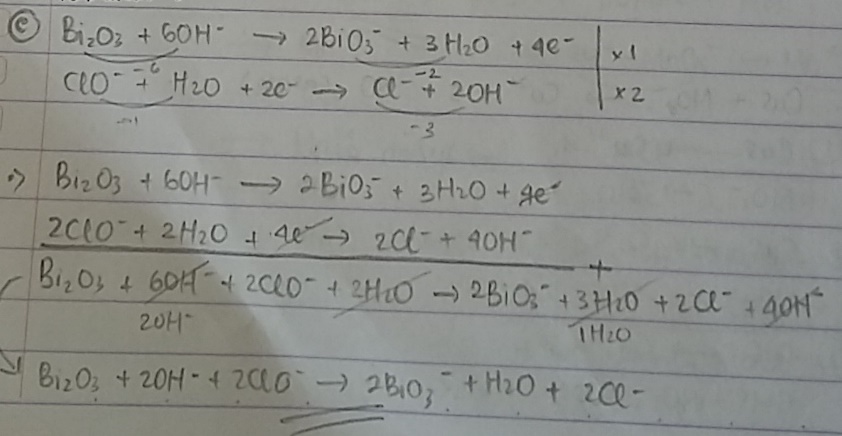 (e) Bi₂O₃ + 6OH⁻ → 2BiO₃⁻ + 3H₂O + 4e⁻ | ×1
-6 -2
ClO⁻ + H₂O + 2e⁻ → Cl⁻ + 2OH⁻ | ×2
-1 -3
Bi₂O₃ + 6OH⁻ → 2BiO₃⁻ + 3H₂O + 4e⁻
2ClO⁻ + 2H₂O + 4e⁻ → 2Cl⁻ + 4OH⁻
+
Bi₂O₃ + 6OH⁻ + 2ClO⁻ + 2H₂O → 2BiO₃⁻ + 3H₂O + 2Cl⁻ + 4OH⁻
2OH⁻ 1H₂O
Bi₂O₃ + 2OH⁻ + 2ClO⁻ → 2BiO₃⁻ + H₂O + 2Cl⁻